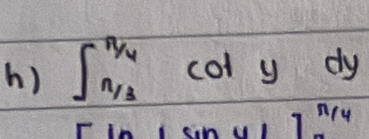 h) ∫_{π/3}^{π/4} cot y dy
[ln | sin y | ]^{π/4}